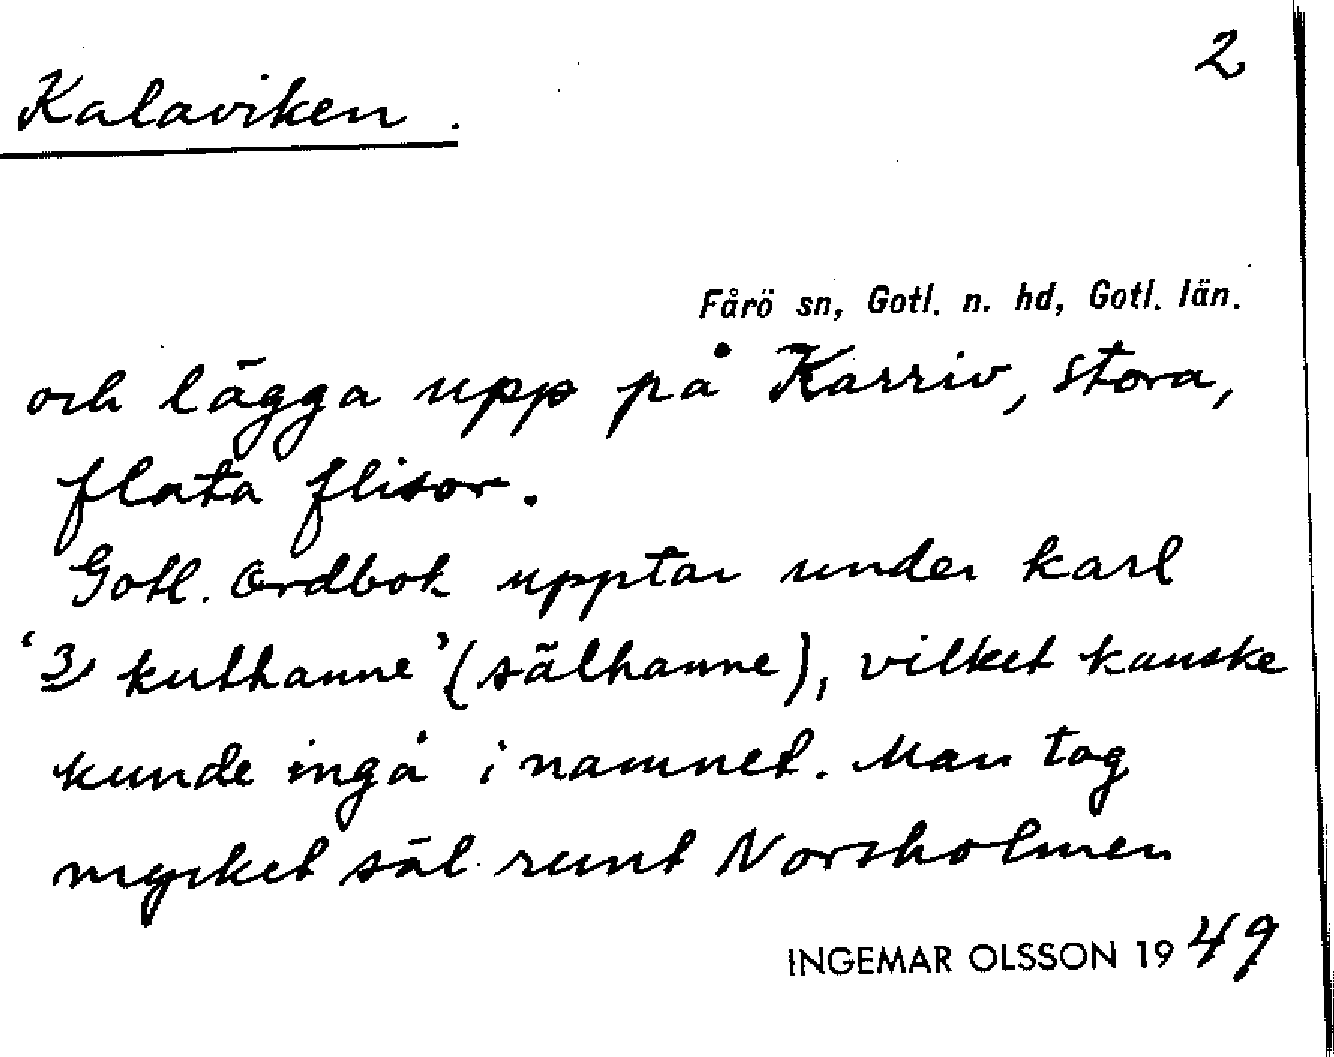 2
Kalaviken.
Fårö sn, Gotl. n. hd, Gotl. län.
och lägga upp på Karriv, stora,
flata flisor.
Gotl. Ordbok upptar under karl
'3) kuthanne' (sälhanne), vilket kanske
kunde ingå i namnet. Man tog
mycket säl runt Norsholmen
INGEMAR OLSSON 1949